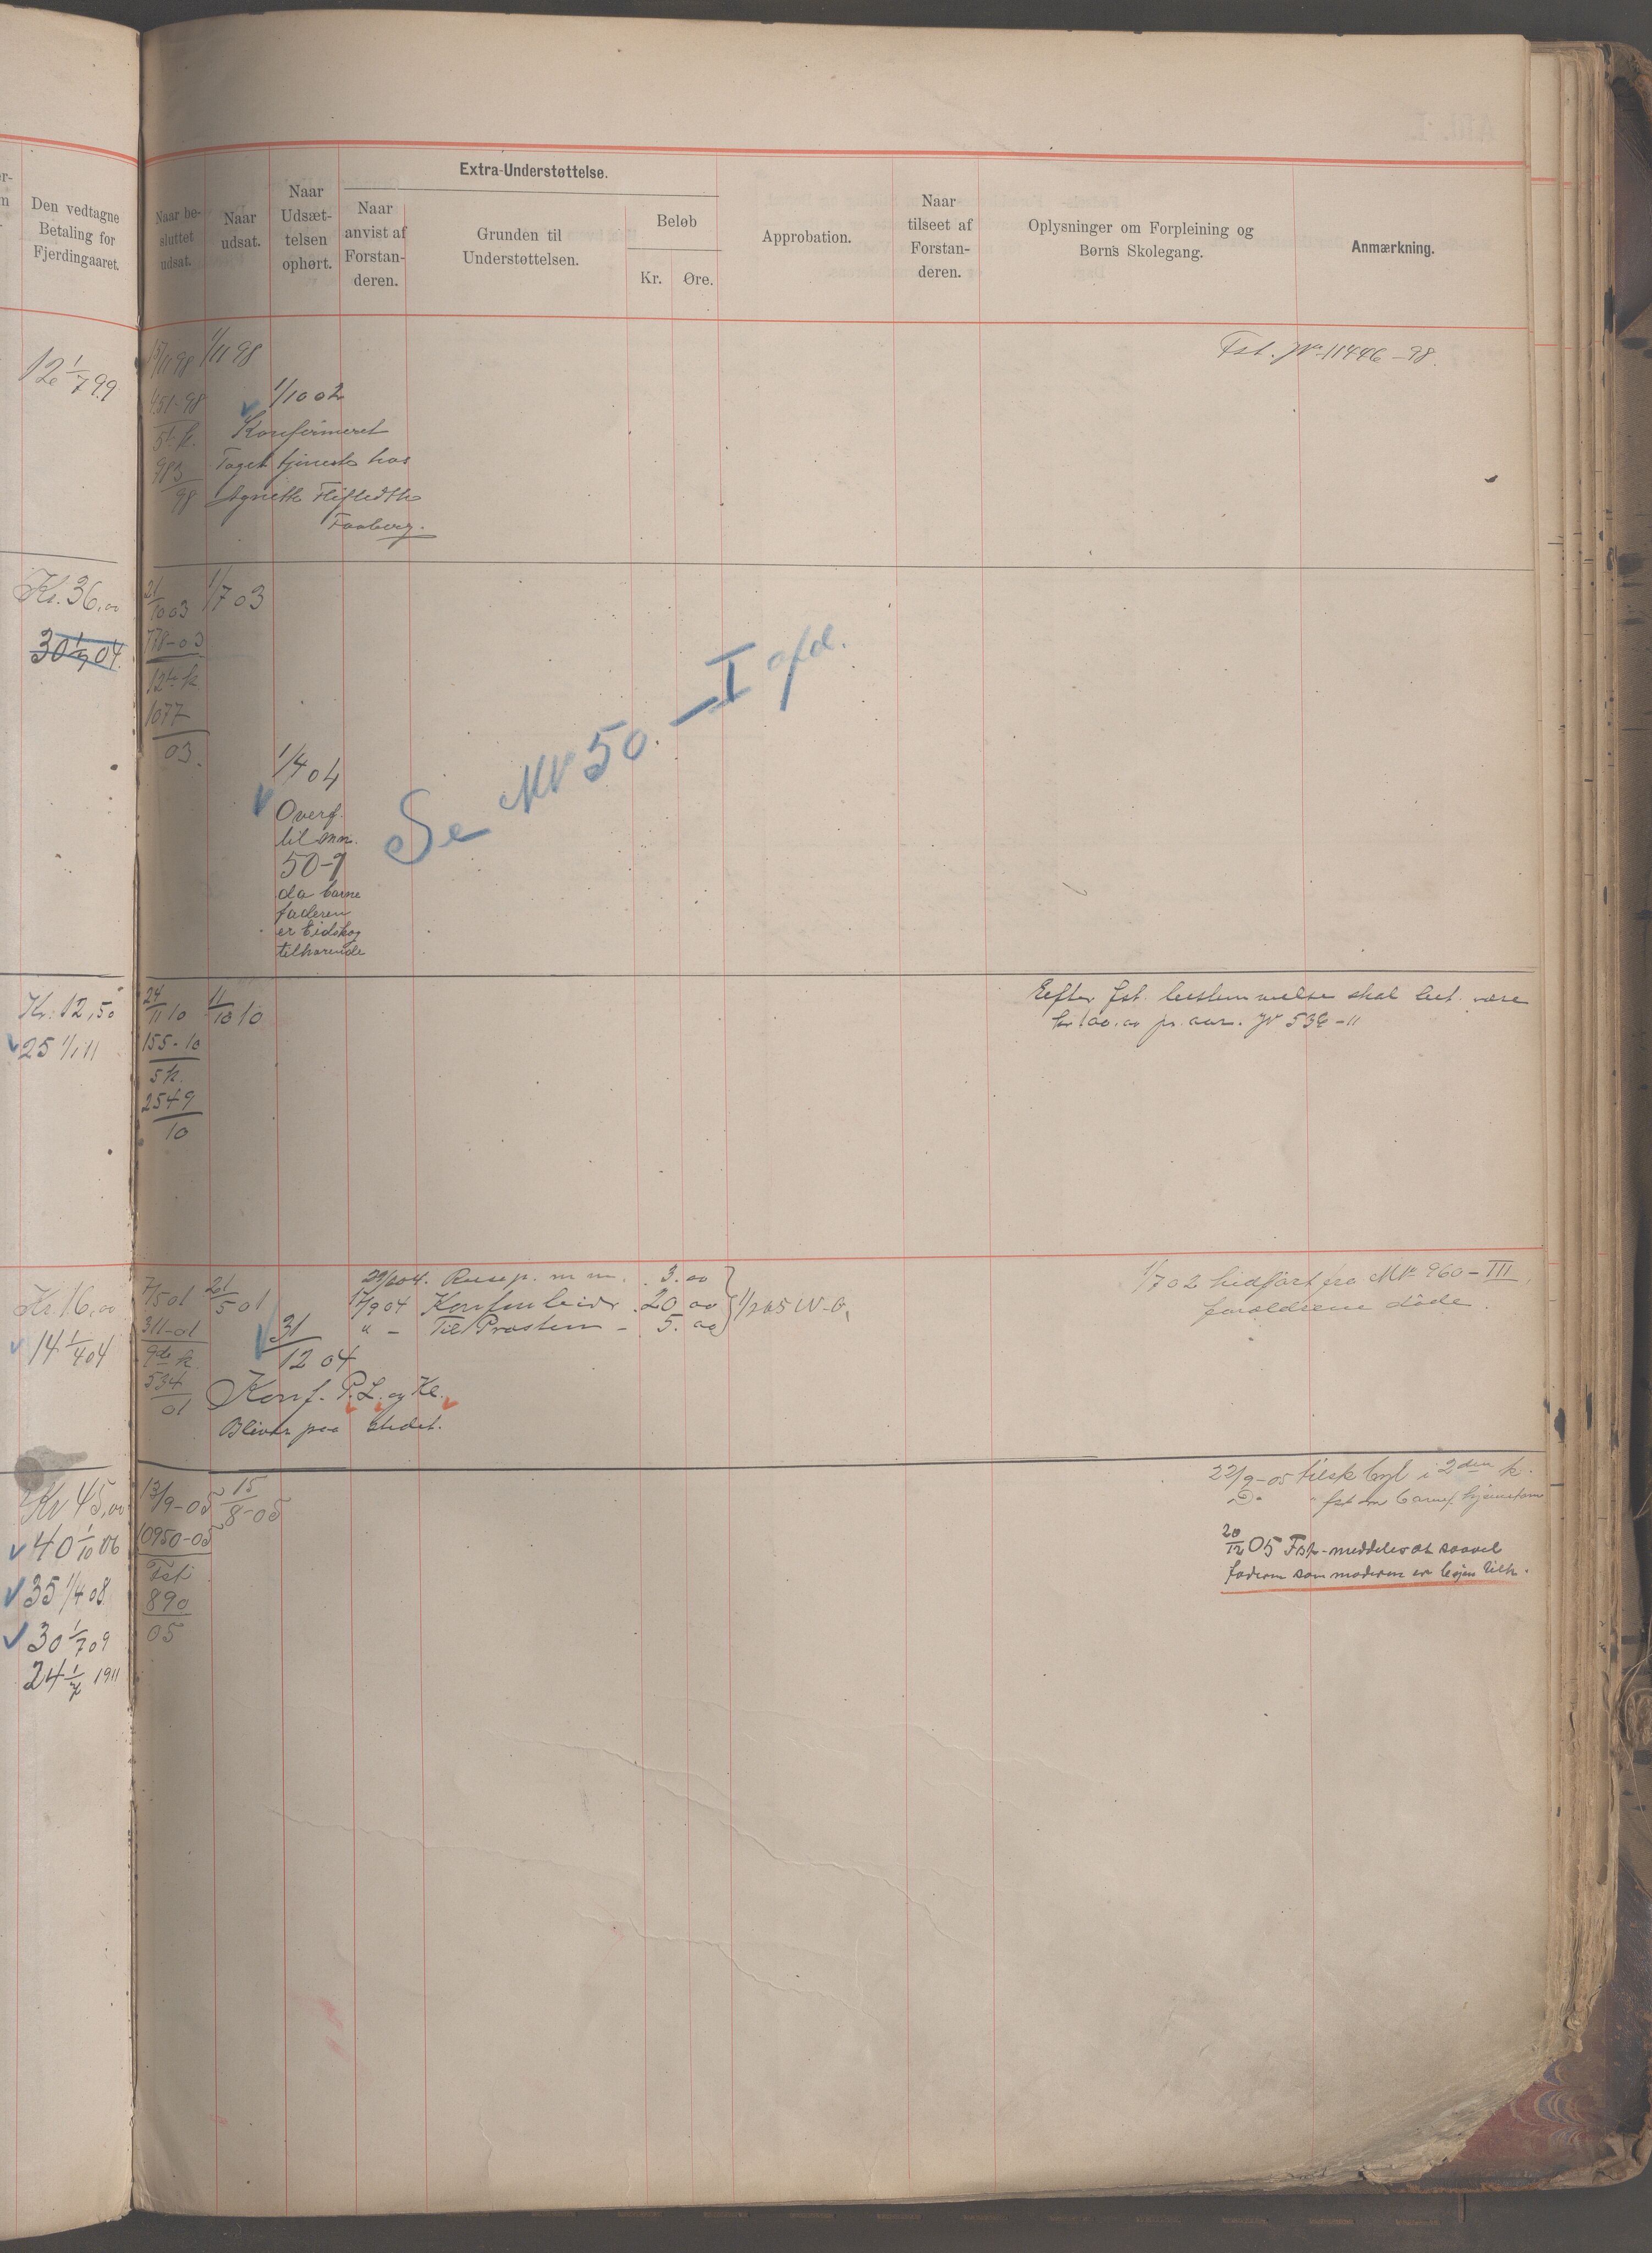 Den vedtagne
Betaling for
Fjerdingaaret.
Naar be-
sluttet
udsat.
Naar
udsat.
Naar
Udsæt-
telsen
ophørt.
Extra-Understøttelse.
Naar
anvist af
Forstan-
deren.
Grunden til
Understøttelsen.
Beløb
Kr. Øre.
Approbation.
Naar
tilseet af
Forstan-
deren.
Oplysninger om Forpleining og
Børns Skolegang.
Anmærkning.
12 1/7 99
15/11 98 1/11 98
Fst. Nr 11446-98.
1/10 02
451-98
5t. k.
983
98
Konfirmeret
Taget tjeneste hos
Agnethe
Faaberg.
Kr. 36,00
30 1/7 04
21/10 03 1/7 03
778-03
12te k
1077
03.
1/4 04
Overf.
til mor.
50-I
da barne
faderen
er Eidskog
tilhørende
Se Nr 50.-I afd.
Kr. 12,50
25 1/1 11
24/11 10 11/10 10
155-10
5 k.
2549
10
Efter fst. bestemmelse skal bet. være
kr 100.00 pr. aar. Nr 538-11
Kr 16,00
14 1/4 04
7/5 01 21/5 01
311-01
9de k.
534
01
31/12 04
Konf. P. L. og Kl.
Bliver paa stedet.
Reisep. m m. 3.00
17/9 04 Konfm klær 20 00
" - Til Presten - 5. 00
1/2 05 W-G.
1/7 02 hidført fra Nr 960-III
forældrene døde.
Kr 45,00
40 1/10 06
35 1/4 08
30 1/7 09
24 1/7 1911
13/9-05 15/8-05
10950-05
Fst:
890
05
22/9-05 tilsk begl i 2den k.
Do " fst om barnef. hjemstavn
20/12 05 Fst. meddeler at saavel
faderen som moderen er byen tilh.